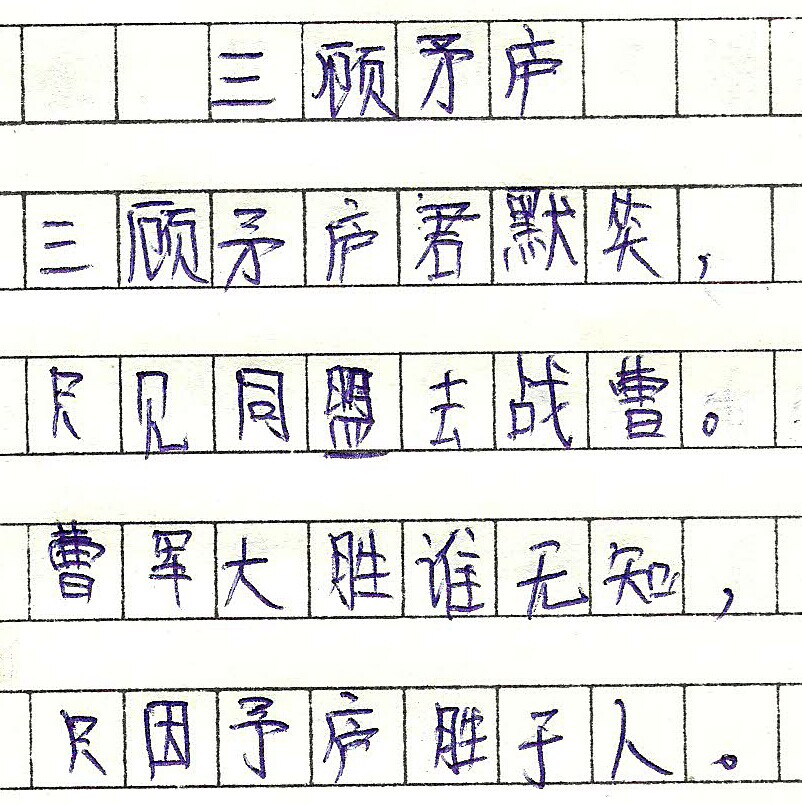 三顾矛庐
三顾矛庐君默笑，
只见同盟去战曹。
曹军大胜谁无知，
只因予庐胜于人。